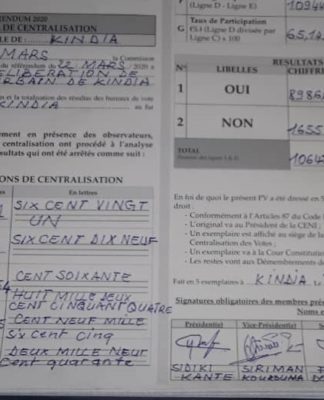 ENDUM 2020
DE CENTRALISATION
LE DE KINDIA
MARS
la Commission
du référendum de 22 MARS / 2020 à
DELIBERATION DE
URBAIN DE KINDIA
n et la totalisation des résultats des bureaux de vote
KINDIA au
ement en présence des observateurs,
centralisation ont procédé à l'analyse
sultats qui ont été arrêtés comme suit :
ONS DE CENTRALISATION
En lettres
SIX CENT VINGT
UN
SIX CENT DIX NEUF
CENT SOIXANTE
HUIT MILLE DEUX
CENT CINQUANT QUATRE
CENT NEUF MILLE
SIX CENT CINQ
DEUX MILLE NEUF
Cent quarante
(Ligne D - Ligne E)
10944
G
Taux de Participation
G (%) (Ligne D divisée par
Ligne C) x 100
65,14
RESULTATS
N°
LIBELLES
CHIFFR
1
OUI
8986
2
NON
1655
TOTAL
1064
En foi de quoi le présent PV a été dressé en 5
droit :
- Conformément à l'Articles 87 du Code
- L'original va au Président de la CENI ;
- Un exemplaire est affiché au siège de la
Centralisation des Votes ;
- Un exemplaire va à la Cour Constitution
- Les restes vont aux Démembrements d
Fait en 5 exemplaires à KINDIA Le
Signatures obligatoires des membres prés
Noms e
Président(e)
Vice-Président(e)
SIDIKI
KANTE
SIRIMAN
KOUROUMA